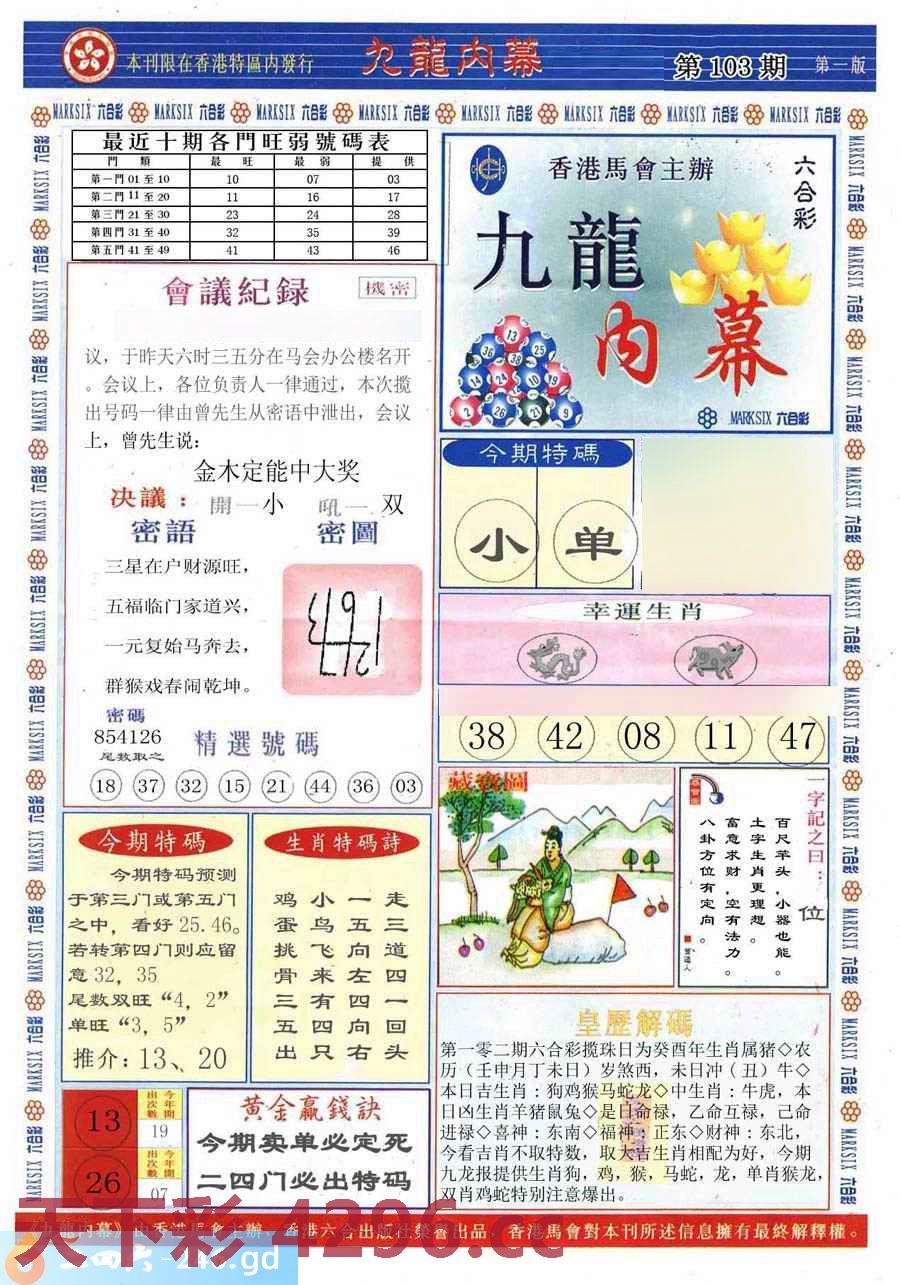 本刊限在香港特區内發行
九龍内幕
第 103 期
第一版
MARKSIX 六合彩
最近十期各門旺弱號碼表
門 類 最 旺 最 弱 提 供
第一門 01 至 10 10 07 03
第二門 11 至 20 11 16 17
第三門 21 至 30 23 24 28
第四門 31 至 40 32 35 39
第五門 41 至 49 41 43 46
會議紀録
機密
议，于昨天六时三五分在马会办公楼名开
。会议上，各位负责人一律通过，本次搅
出号码一律由曾先生从密语中泄出，会议
上，曾先生说：
金木定能中大奖
决議：開一小 吼一双
密語
密圖
三星在户财源旺，
五福临门家道兴，
一元复始马奔去，
群猴戏春闹乾坤。
密碼
854126
尾数取之
精選號碼
18 37 32 15 21 44 36 03
香港馬會主辦
六合彩
九龍
内幕
13
36 38 25
14 24 10 19
2 26 21 9
MARKSIX 六合彩
今期特碼
小 单
幸運生肖
38 42 08 11 47
藏寶圖
一字記之曰：位
百尺竿头,小器也能。
土字生肖更理想。
富意求财,空有法力。
八卦方位有定向。
曾道人
今期特碼
今期特码预测
于第三门或第五门
之中，看好 25.46。
若转第四门则应留
意 32，35
尾数双旺“4，2”
单旺“3，5”
推介：13、20
生肖特碼詩
鸡 小 一 走
蛋 鸟 五 三
挑 飞 向 道
骨 来 左 四
三 有 四 一
五 四 向 回
出 只 右 头
13
今年開出次數
19
26
今年開出次數
07
黄金赢錢訣
今期卖单必定死
二四门必出特码
皇歷解碼
第一零二期六合彩搅珠日为癸酉年生肖属猪◇农
历（壬申月丁未日）岁煞西，未日冲（丑）牛◇
本日吉生肖：狗鸡猴马蛇龙◇中生肖：牛虎，本
日凶生肖羊猪鼠兔◇是日命禄，乙命互禄，己命
进禄◇喜神：东南◇福神：正东◇财神：东北，
今看吉肖不取特数，取大吉生肖相配为好，今期
九龙报提供生肖狗，鸡，猴，马蛇，龙，单肖猴龙，
双肖鸡蛇特别注意爆出。
《九龍内幕》由香港馬會主辦，香港六合出版社榮譽出品。香港馬會對本刊所述信息擁有最終解釋權。
天下彩 4296.cc
二四六-246.gd